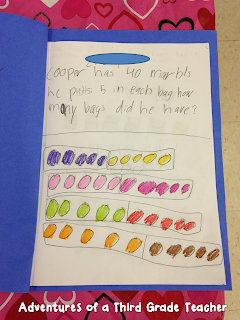 cooper has 40 marbls
he puts 5 in each bag how
many bags did he have?
Adventures of a Third Grade Teacher